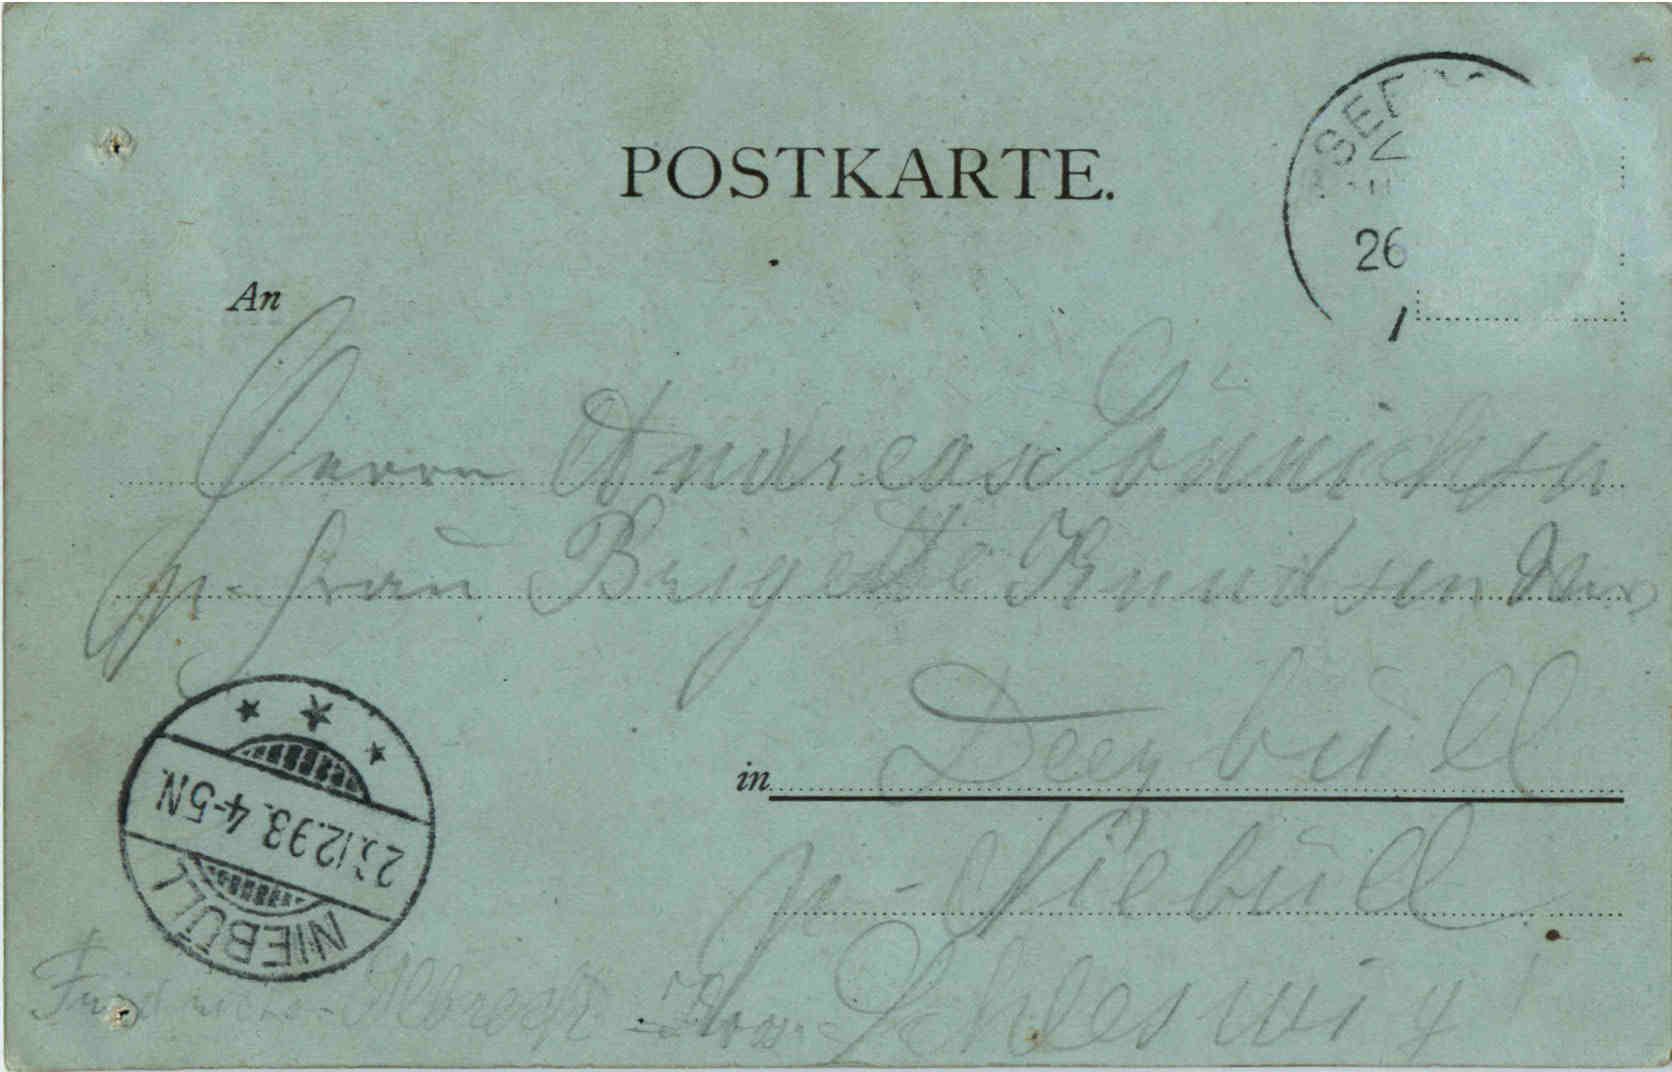 POSTKARTE.
SEE
26
An
Herrn Andreas Sönnichsen
p. Frau Brigette Knudsen Ww
in Deezbüll
p. Niebüll
Schleswig
NIEBÜLL
12.93. 4-5N.
Albrecht